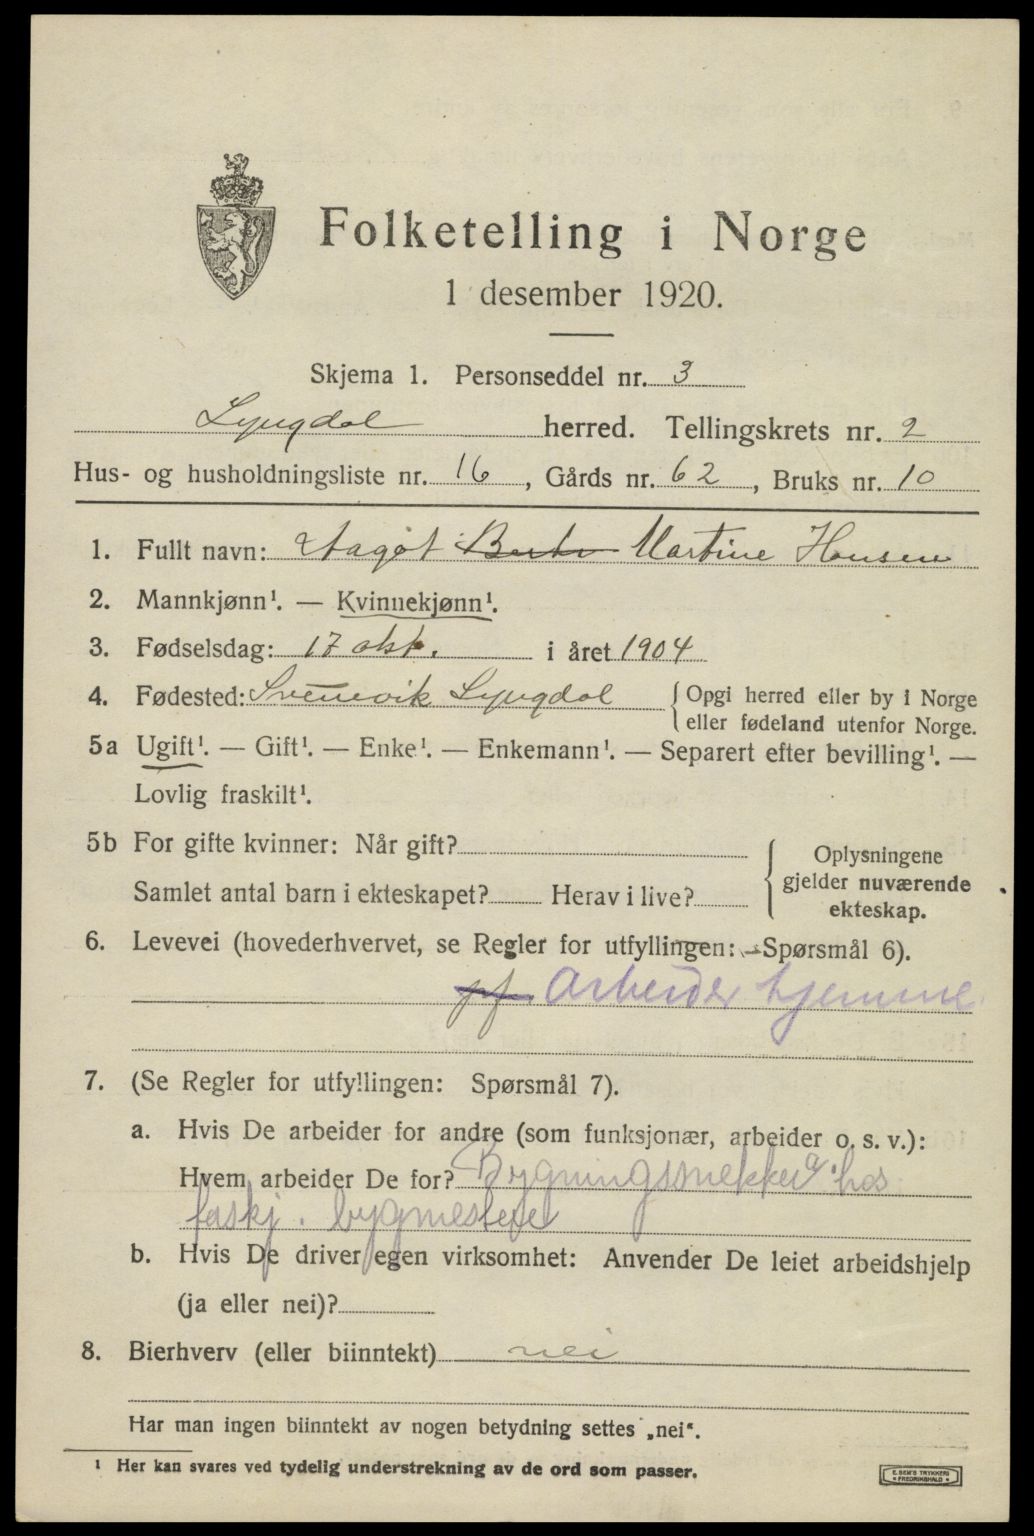 Folketelling i Norge
1 desember 1920.
Skjema 1. Personseddel nr. 3
Lyngdal herred. Tellingskrets nr. 2
Hus- og husholdningsliste nr. 16, Gårds nr. 62, Bruks nr. 10
1. Fullt navn: Dagot Martine Hansen
2. Mannkjønn¹. — Kvinnekjønn¹.
3. Fødselsdag: 17 okt. i året 1904
4. Fødested: Svenevik Lyngdal { Opgi herred eller by i Norge
eller fødeland utenfor Norge.
5a Ugift¹. — Gift¹. — Enke¹. — Enkemann¹. — Separert efter bevilling¹. —
Lovlig fraskilt¹.
5b For gifte kvinner: Når gift?
Samlet antal barn i ekteskapet? Herav i live?
{ Oplysningene
gjelder nuværende
ekteskap.
6. Levevei (hovederhvervet, se Regler for utfyllingen: Spørsmål 6).
pf Arbeider hjemme
7. (Se Regler for utfyllingen: Spørsmål 7).
a. Hvis De arbeider for andre (som funksjonær, arbeider o. s. v.):
Hvem arbeider De for? Bygningssnekker a. hos
forskj. bygmestere
b. Hvis De driver egen virksomhet: Anvender De leiet arbeidshjelp
(ja eller nei)?
8. Bierhverv (eller biinntekt) nei
Har man ingen biinntekt av nogen betydning settes „nei“.
¹ Her kan svares ved tydelig understrekning av de ord som passer.
E. SEM'S TRYKKERI
FREDRIKSHALD